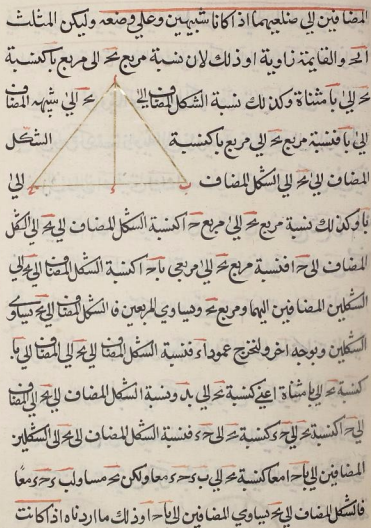 المضافين إلى ضلعيهما اذا كانا شبيهين وعلى وضعه وليكن المثلث
ا ب ح والقايمة زاوية ا وذلك لان نسبة مربع ب ح الى مربع ب ا كنسبة
ب ح الى ب ا مثناة وكذلك نسبة الشكل المضاف الى ب ح الى شبيهه المضاف
الى ب ا فنسبة مربع ب ح الى مربع ب ا كنسبة الشكل
المضاف الى ب ح الى الشكل المضاف الى
ب ا وكذلك نسبة مربع ب ح الى مربع ح ا كنسبة الشكل المضاف الى ب ح الى الشكل
المضاف الى ح ا فنسبة مربع ب ح الى مربعي ب ا ح ا كنسبة الشكل المضاف الى ب ح الى
الشكلين المضافين اليهما ومربع ب ح يساوي المربعين فالشكل المضاف الى ب ح يساوي
الشكلين وبوجه اخر ولنخرج عمود ا ء فنسبة الشكل المضاف الى ب ح الى المضاف الى ب ا
كنسبة ب ح الى ب ا مثناة اعني كنسبة ب ح الى ب ء ونسبة الشكل المضاف الى ب ح الى المضاف
الى ح ا كنسبة ب ح الى ح ء كنسبة ب ح الى ح ء فنسبة الشكل المضاف الى ب ح الى الشكلين
المضافين الى ب ا ح ا معا كنسبة ب ح الى ب ء ح ء معا ولكن ب ح مساو لب ء ح ء معا
فالشكل المضاف الى ب ح يساوي المضافين الى ب ا ح ا وذلك ما اردناه اذا كانت